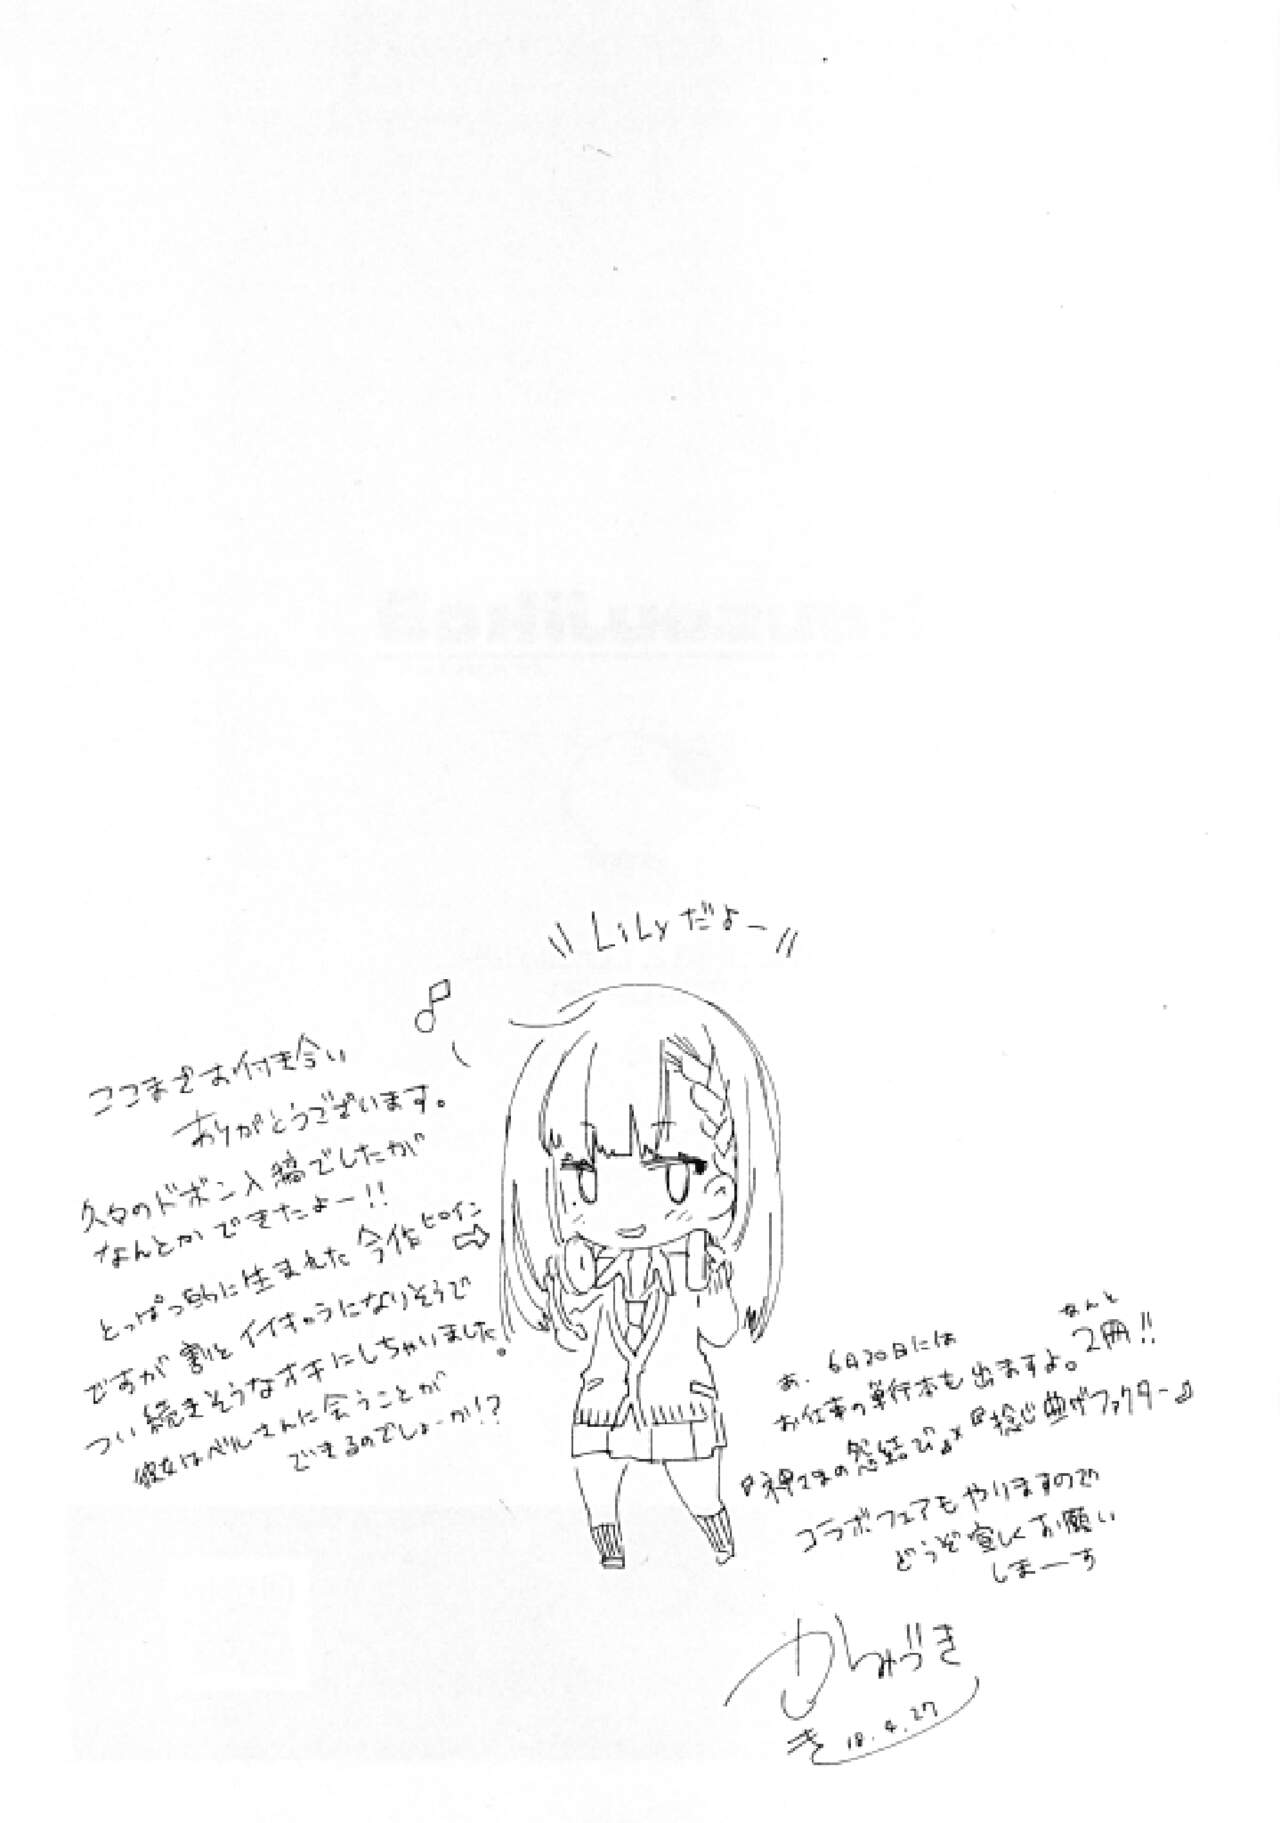 Lilyだよー
ここまでお付き合い
ありがとうございます。
久々のドボン入稿でしたが
なんとかできたよー!!
とっぱつ的に生まれた今作ヒロイン
ですが割とイイキャラになりそうで
つい続きそうなオチにしちゃいました!
彼女はベルさんに会うことが
できるのでしょーか!?
あ、6月30日には
お仕事の単行本も出ますよ。なんと2冊!!
『神さまの怨結び』×『捻じ曲げファクター』
コラボフェアもやりますので
どうぞ宜しくお願い
しまーす
かつみゅづき
18.4.27